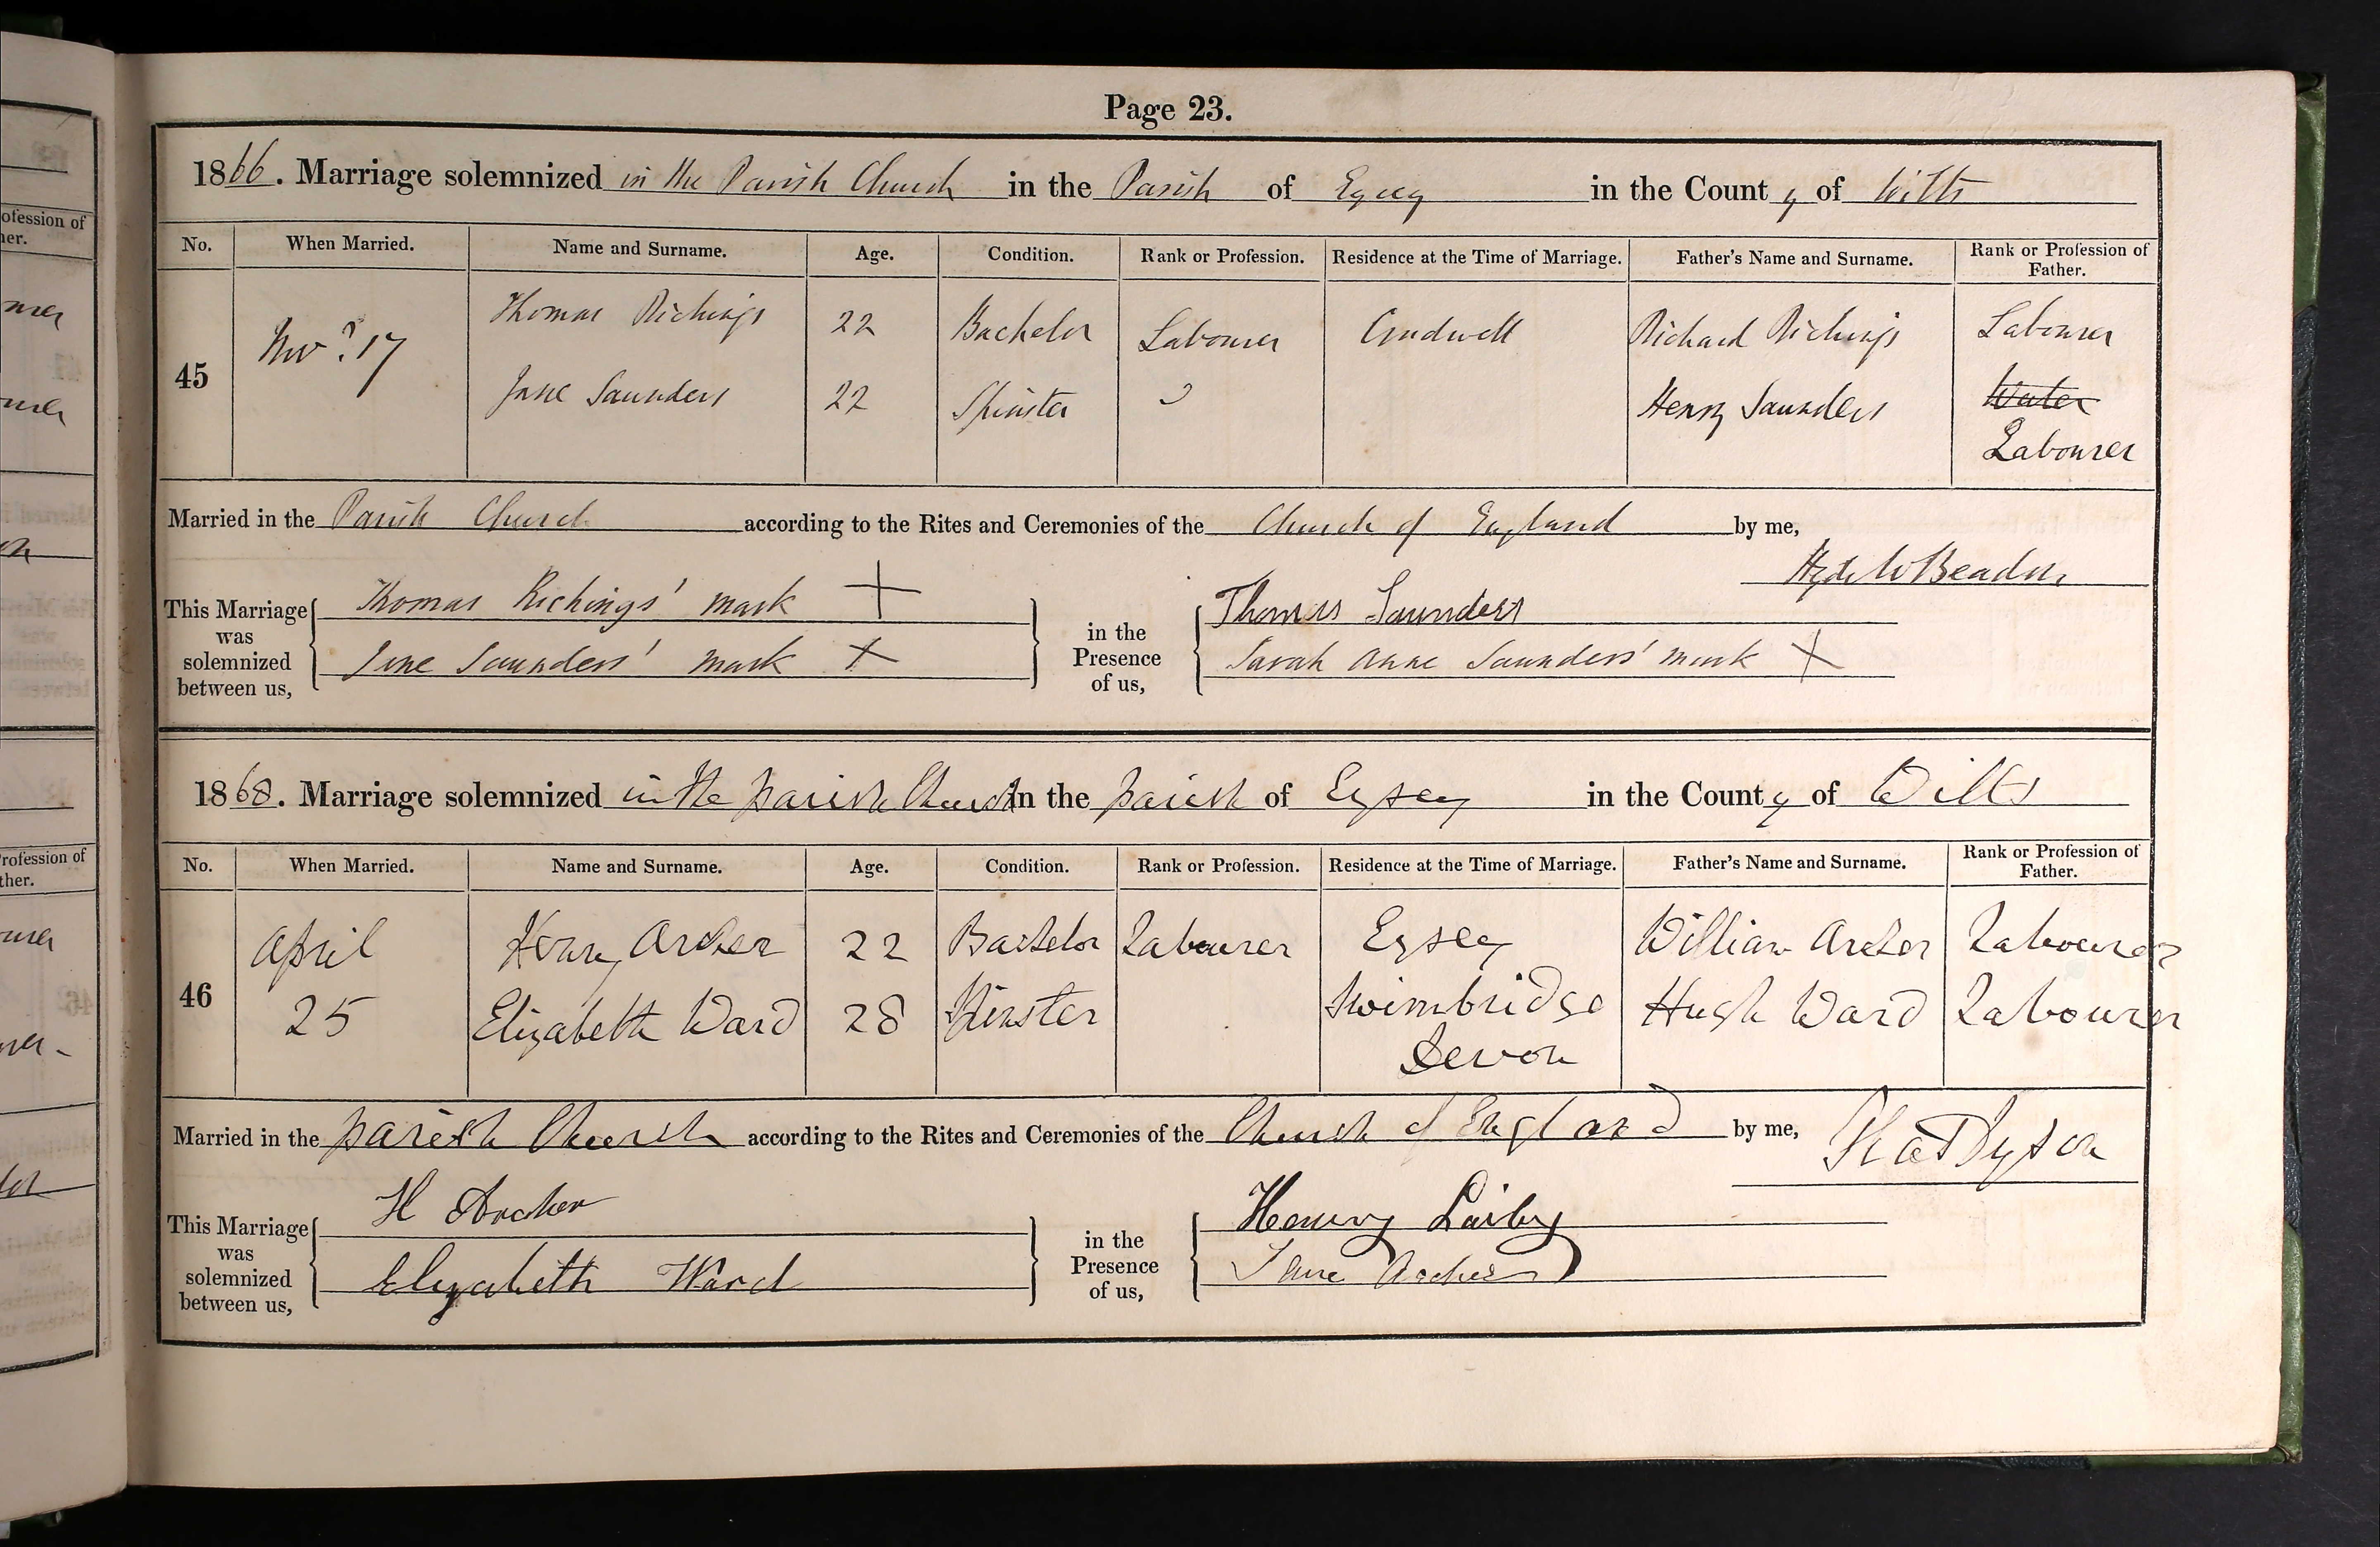 Page 23.
1866. Marriage solemnized in the Parish Church in the Parish of Eysey in the County of Wilts
No. When Married. Name and Surname. Age. Condition. Rank or Profession. Residence at the Time of Marriage. Father's Name and Surname. Rank or Profession of Father.
45 Novr. 17 Thomas Richings 22 Bachelor Labourer Crudwell Richard Richings Labourer
Jane Saunders 22 Spinster Henry Saunders Water
Labourer
Married in the Parish Church according to the Rites and Ceremonies of the Church of England by me,
Hyde W Beadon
This Marriage was solemnized between us, Thomas Richings' mark + in the Presence of us, Thomas Saunders
Jane Saunders' mark + Sarah Anne Saunders' mark +
1868. Marriage solemnized in the parish Church in the parish of Eysey in the County of Wilts
No. When Married. Name and Surname. Age. Condition. Rank or Profession. Residence at the Time of Marriage. Father's Name and Surname. Rank or Profession of Father.
46 April Henry Archer 22 Bachelor Labourer Eysey William Archer Labourer
25 Elizabeth Ward 28 Spinster Swimbridge Hugh Ward Labourer
Devon
Married in the parish Church according to the Rites and Ceremonies of the Church of England by me, Dyson
This Marriage was solemnized between us, H Archer in the Presence of us, Henry
Elizabeth Ward Jane Archer
ofession of
her.
rofession of
ther.